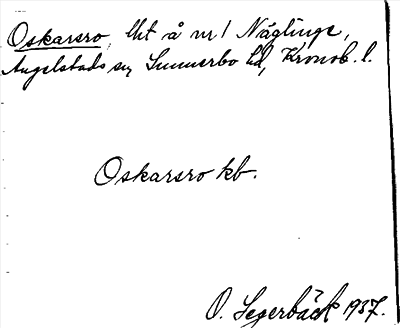 Oskarsro, lht å nr 1 Näglinge,
Angelstads sn, Sunnerbo hd, Kronob. l.
Oskarsro kb.
O. Segerbäck 1937.